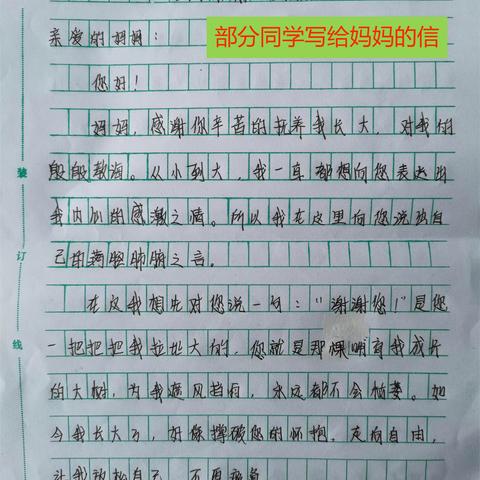 部分同学写给妈妈的信
亲爱的妈妈：
您好！
妈妈，感谢你辛苦的抚养我长大，对我的
殷殷教诲。从小到大，我一直都想向您表达出
我内心的感激之情。所以我在这里向您说出自
己的满腔肺腑之言。
在这我想先对您说一句：“谢谢您！”是您
一把把把我拉扯大的，您就是那棵哺育我成长
的大树，为我遮风挡雨，永远都不会枯萎。如
今我长大了，好像撑破您的怀抱。走向自由，
让我放松自己，不再疲惫
装
订
线